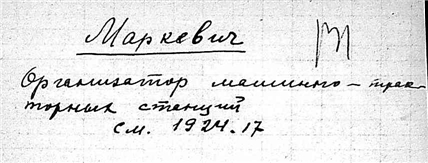 Маркевич
Организатор машинно-трак-
торных станций
см. 1924.17